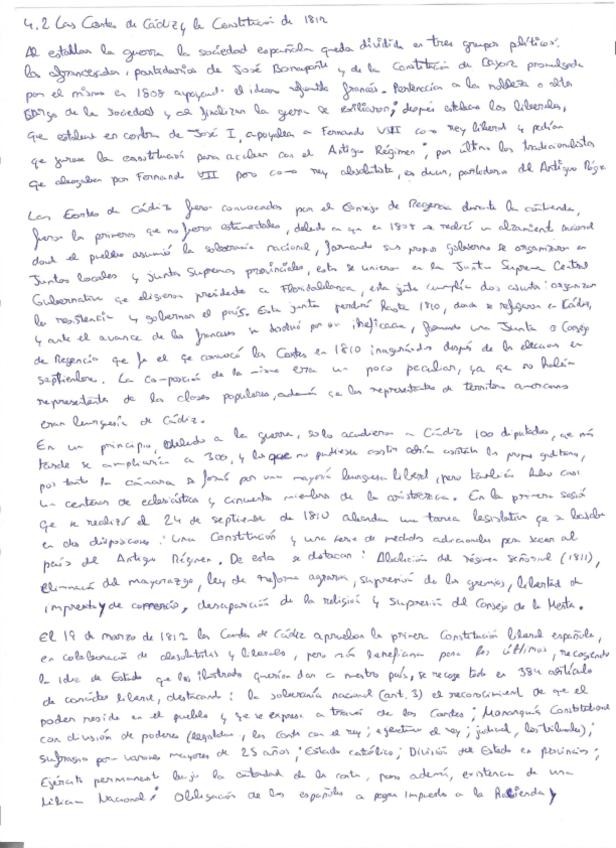 4.2 Las Cortes de Cádiz y la Constitución de 1812
Al estallar la guerra la sociedad española queda dividida en tres grupos políticos:
los afrancesados, partidarios de José Bonaparte y de la Constitución de Bayona promulgada
por el mismo en 1808 apoyando el ideario francés. Pertenecían a la nobleza o alto
de la sociedad y al finalizar la guerra se exiliaron; después estaban los liberales,
que estaban en contra de José I, apoyaban a Fernando VII como rey liberal y pedían
que jurase la constitución para acabar con el Antiguo Régimen; por último los tradicionalistas
que abogaban por Fernando VII pero como rey absolutista, es decir, partidarios del Antiguo Rég.
Las Cortes de Cádiz fueron convocadas por el Consejo de Regencia durante la contienda,
fueron las primeras que no fueron estamentales, debido a que en 1808 se realizó un alzamiento nacional
donde el pueblo asumió la soberanía nacional, formando sus propios gobiernos se organizaron en
Juntas locales y juntas Supremas provinciales, estas se unieron en la Junta Suprema Central
Gubernativa que eligieron presidente a Floridablanca, esta junta cumplía dos : organizar
la resistencia y gobernar el país. Esta junta perduró hasta 1810, donde se refugiaron en Cádiz,
y ante el avance de los franceses se por su ineficacia, formando una Junta o Consejo
de Regencia que fue el que convocó las Cortes en 1810 inaugurándose después de la elecciones en
septiembre. La composición de la misma era un poco peculiar, ya que no había
representantes de las clases populares, además que los representantes de territorios americanos
eran burguesía de Cádiz.
En un principio debido a la guerra, solo acudieron a Cádiz 100 diputados, que más
tarde se ampliarían a 300, y los que no pudiesen asistir gaditanos,
por tanto la cámara se formó por una mayoría burguesa liberal, pero también hubo casi
un centenar de eclesiásticos y cincuenta miembros de la aristocracia. En la primera sesión
que se realizó el 24 de septiembre de 1810 abordan una tarea legislativa que se basaba
en dos disposiciones: una Constitución y una serie de medidas adicionales para sacar al
país del Antiguo Régimen. De esta se destacan: Abolición del régimen señorial (1811),
eliminación del mayorazgo, ley de reforma agraria, supresión de los gremios, libertad de
imprenta y de comercio, desaparición de la religión y Supresión del Consejo de la Mesta.
El 19 de marzo de 1812 las Cortes de Cádiz aprueban la primera Constitución liberal española,
en colaboración de absolutistas y liberales, pero más beneficiosa para los últimos, recogiendo
la idea de Estado que los ilustrados querían dar a nuestro país, se recoge todo en 384 artículos
de carácter liberal, destacando: la soberanía nacional (art. 3) el reconocimiento de que el
poder reside en el pueblo y que se expresa a través de las Cortes; Monarquía Constitucional
con división de poderes (legislativo, las cortes con el rey; ejecutivo el rey; judicial, los tribunales);
sufragio para varones mayores de 25 años; Estado católico; División del Estado en provincias;
Ejército permanente bajo la autoridad de las cortes, pero además, existencia de una
Milicia Nacional; Obligación de los españoles a pagar impuestos a la Hacienda y